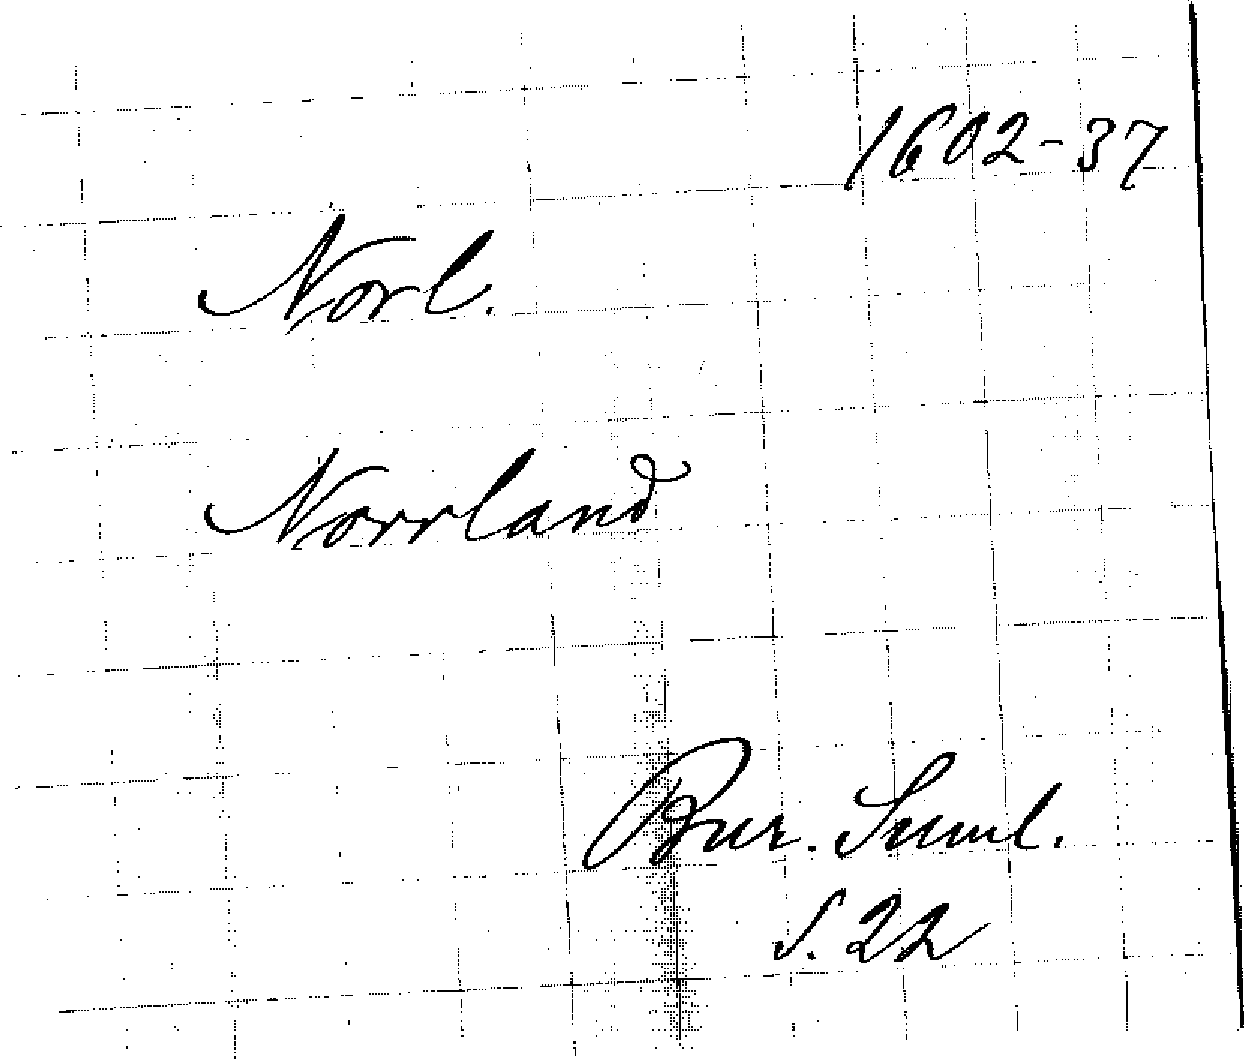 1602-37
Norl.
Norrland
Bur. Suml.
s. 22